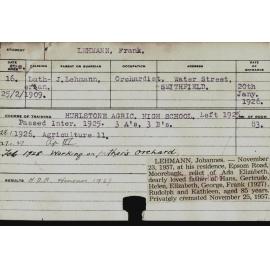 STUDENT
LEHMANN, Frank.
RELIGION PARENT OR GUARDIAN OCCUPATION ADDRESS
16. Luth- J. Lehmann, Orchardist, Water Street, 20th
eran. SMITHFIELD. Jany.
25/2/1909. 1926.
COURSE OF TRAINING
HURLSTONE AGRIC. HIGH SCHOOL, Left 1925
Passed Inter. 1925. 3 A's, 3 B's. 83.
1926, Agriculture 11.
Feb 1928 Working on father's orchard
RESULTS H.D.A. Honours 1927
LEHMANN, Johannes. — November
23, 1957, at his residence, Epsom Road,
Moorebank, relict of Ada Elizabeth,
dearly loved father of Hans, Gertrude,
Helen, Elizabeth, George, Frank (1927),
Rudolph and Kathleen, aged 85 years.
Privately cremated November 25, 1957.